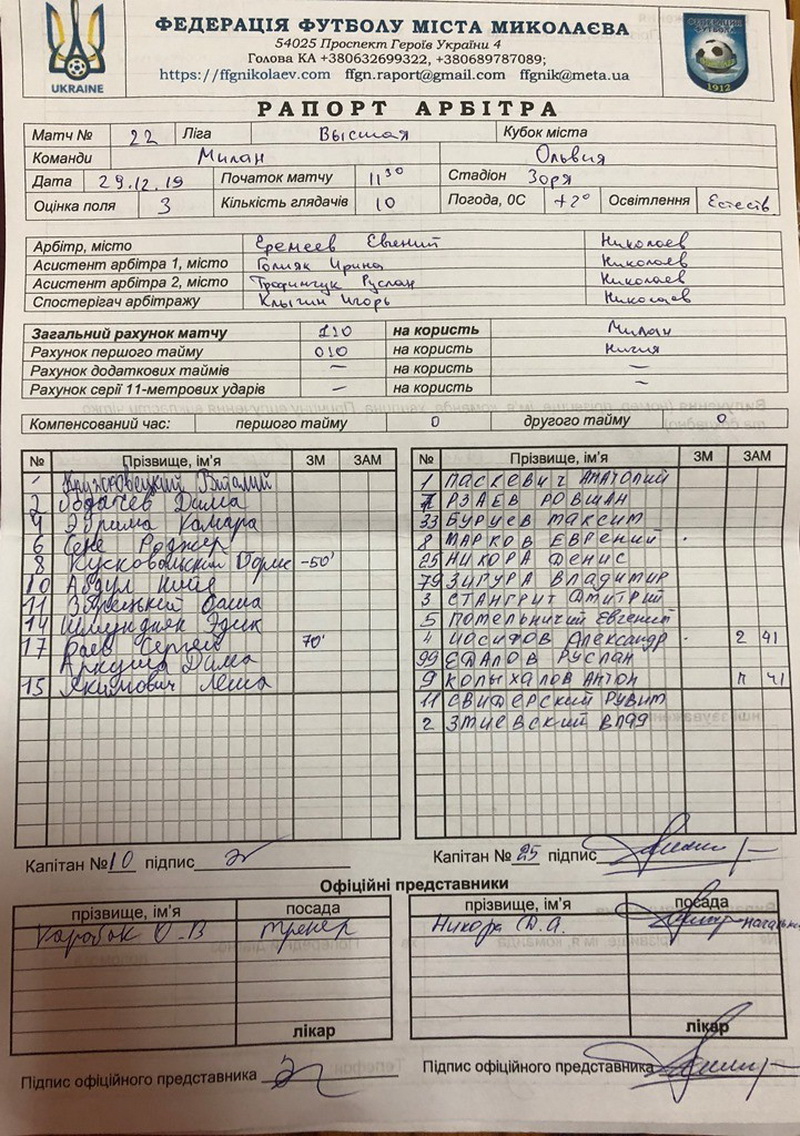 UKRAINE
ФЕДЕРАЦІЯ ФУТБОЛУ МІСТА МИКОЛАЄВА
54025 Проспект Героїв України 4
Голова КА +380632699322, +380689787089;
https://ffgnikolaev.com ffgn.raport@gmail.com ffgnik@meta.ua
ФЕДЕРАЦІЯ ФУТБОЛУ
1912
РАПОРТ АРБІТРА
Матч № 22 Ліга Высшая Кубок міста
Команди Милан Ольвия
Дата 29.12.19 Початок матчу 11 30 Стадіон Зоря
Оцінка поля 3 Кількість глядачів 10 Погода, 0С +2° Освітлення Естеств.
Арбітр, місто Еремеев Евгений Николаев
Асистент арбітра 1, місто Голияк Ирина Николаев
Асистент арбітра 2, місто Трофимчук Руслан Николаев
Спостерігач арбітражу Клыгин Игорь Николаев
Загальний рахунок матчу 1:0 на користь Милан
Рахунок першого тайму 0:0 на користь Ничия
Рахунок додаткових таймів — на користь —
Рахунок серії 11-метрових ударів — на користь —
Компенсований час: першого тайму 0 другого тайму 0
№ Прізвище, ім'я ЗМ ЗАМ
Виталий
2 Дима
4 Эбрима Камара
6 Сене Роджер
8 -50'
10 Абдул
11 Саша
14 Эдик
17 Баев Сергей 70'
Аркуша Дима
15 Якимович Леша
№ Прізвище, ім'я ЗМ ЗАМ
1 ПАСКЕВИЧ АНАТОЛИЙ
7 РЗАЕВ РОВШАН
33 БУРЦЕВ МАКСИМ
8 МАРКОВ ЕВГЕНИЙ
25 НИКОРА ДЕНИС
79 ЗИГУРА ВЛАДИМИР
3 СТАНГРИТ ДМИТРИЙ
5 ПОМЕЛЬНИЧИЙ ЕВГЕНИЙ
4 ИОСИФОВ АЛЕКСАНДР 2 41
99 ЕДАЛОВ РУСЛАН
9 КОЛЫХАЛОВ АНТОН 11 41
11 СВИДЕРСКИЙ РУВИМ
2 ЗМИЕВСКИЙ ВЛАД
Капітан № 10 підпис
Капітан № 25 підпис
Офіційні представники
прізвище, ім'я посада
Каробок О.В тренер
лікар
прізвище, ім'я посада
Никора Д.А.
лікар
Підпис офіційного представника
Підпис офіційного представника